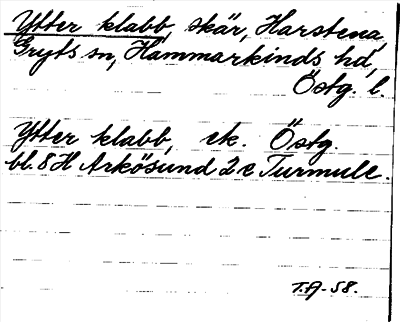 Ytter klabb, skär, Harstena,
Gryts sn, Hammarkinds hd,
Östg. l.
Ytter klabb, ek. Östg.
bl. 8 H Arkösund 2 c Turmull.
T.A-58.